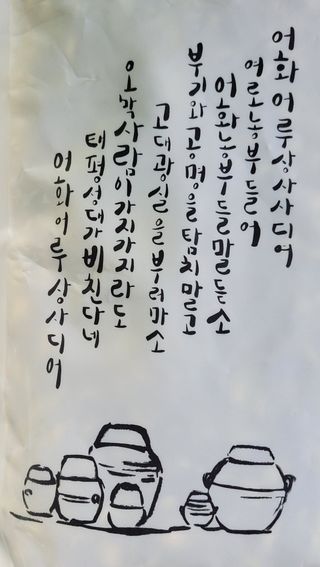 어화 어루 상사디어
여로 농부들어
어화 농부들 말 듣소
부귀와 공명을 탐치말고
고대광실을 부러마소
오막사람이 가지가지라도
태평성대가 비친다네
어화 어루 상사디어